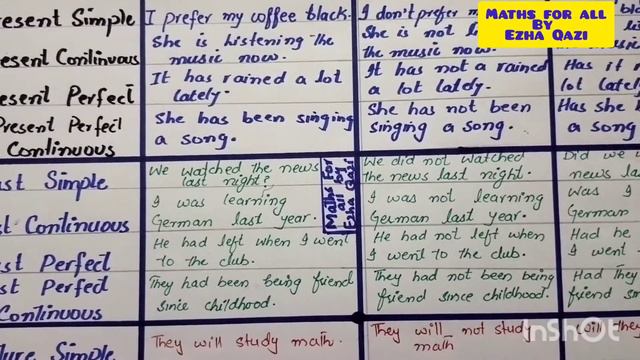 MATHS FOR ALL
BY
EZHA QAZI
Present Simple
I prefer my coffee black.
I don't prefer
She is listening the
music now.
She is not
the music now.
Present Continuous
It has rained a lot
lately.
It has not a rained
a lot lately.
Has it
lot lately
Present Perfect
She has been singing
a song.
She has not been
singing a song.
Has she
a song
Present Perfect
Continuous
Past Simple
We watched the news
last night?
We did not watched
the news last night.
Did we
news
Past Continuous
I was learning
German last year.
I was not learning
German last year.
Was I
German
Past Perfect
He had left when I went
to the club.
He had not left when
I went to the club.
Had he
I went
Past Perfect
Continuous
They had been being friend
since childhood.
They had not been being
friend since childhood.
Had they
friend
Maths For
all by
Ezha Qazi
Future Simple
They will study math.
They will not study
math
Will they
InShot